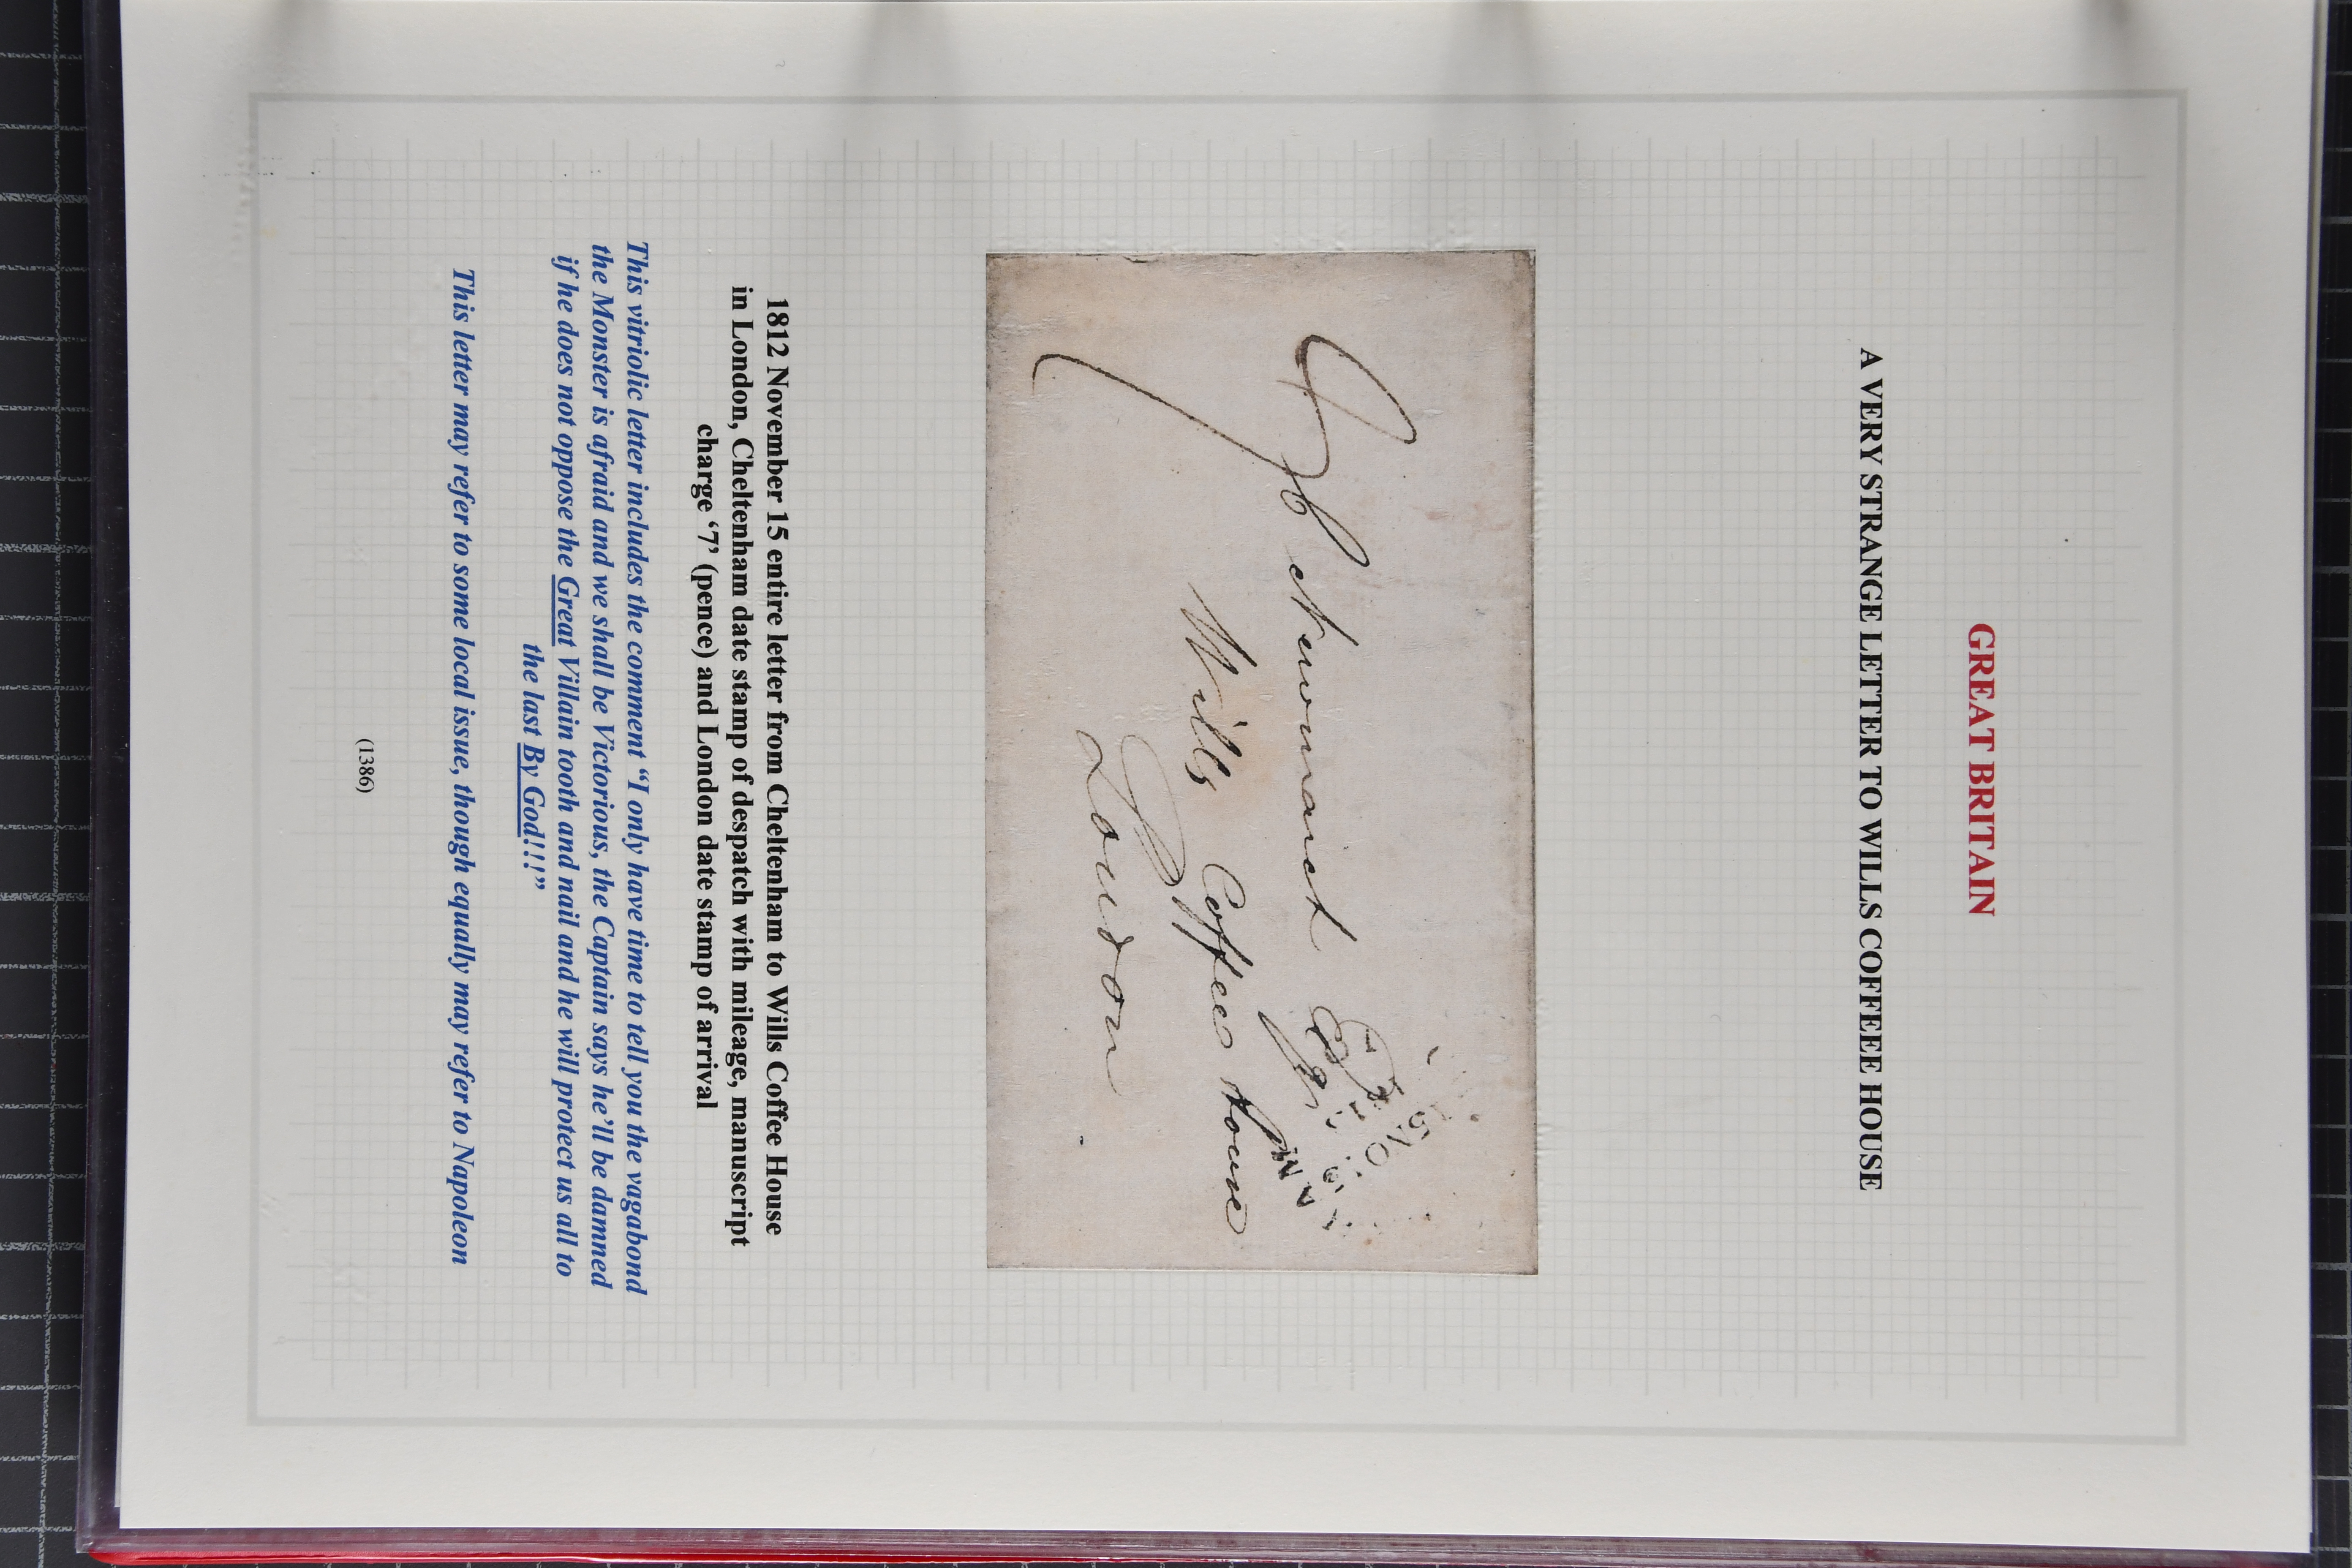 GREAT BRITAIN
A VERY STRANGE LETTER TO WILLS COFFEEE HOUSE
Newmarch Esq
Wills Coffee House
London
1812 November 15 entire letter from Cheltenham to Wills Coffee House
in London, Cheltenham date stamp of despatch with mileage, manuscript
charge ‘7’ (pence) and London date stamp of arrival
This vitriolic letter includes the comment “I only have time to tell you the vagabond
the Monster is afraid and we shall be Victorious, the Captain says he’ll be damned
if he does not oppose the Great Villain tooth and nail and he will protect us all to
the last By God!!!”
This letter may refer to some local issue, though equally may refer to Napoleon
(1386)